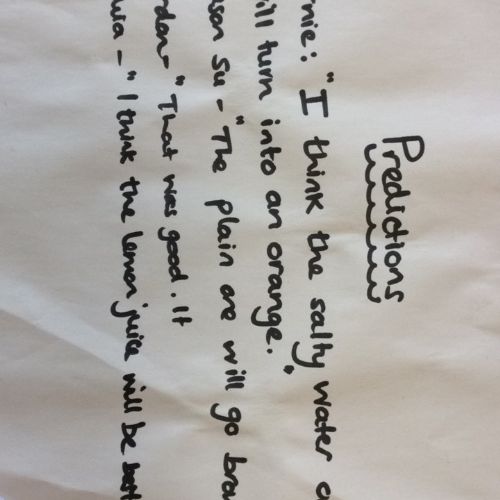 Predictions
nie: "I think the salty water
ill turn into an orange."
son Su - "The plain one will go brow
dan - "That was good. It
wa - "I think the lemon juice will be bett